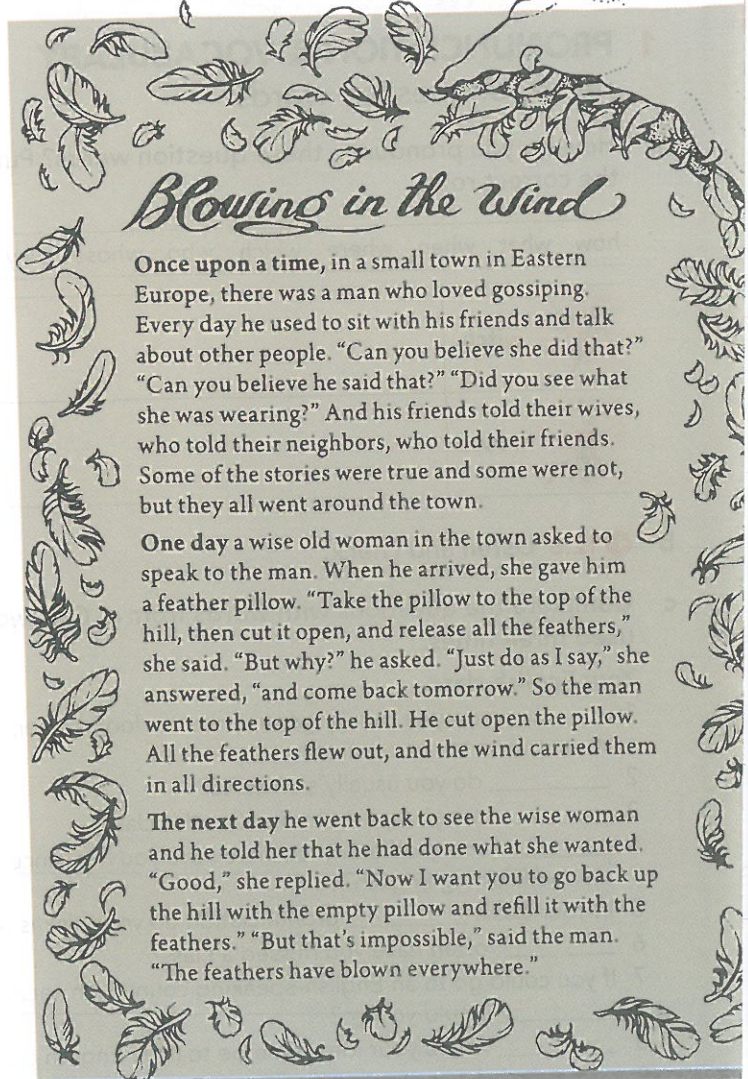 Blowing in the Wind
Once upon a time, in a small town in Eastern
Europe, there was a man who loved gossiping.
Every day he used to sit with his friends and talk
about other people. “Can you believe she did that?”
“Can you believe he said that?” “Did you see what
she was wearing?” And his friends told their wives,
who told their neighbors, who told their friends.
Some of the stories were true and some were not,
but they all went around the town.
One day a wise old woman in the town asked to
speak to the man. When he arrived, she gave him
a feather pillow. “Take the pillow to the top of the
hill, then cut it open, and release all the feathers,”
she said. “But why?” he asked. “Just do as I say,” she
answered, “and come back tomorrow.” So the man
went to the top of the hill. He cut open the pillow.
All the feathers flew out, and the wind carried them
in all directions.
The next day he went back to see the wise woman
and he told her that he had done what she wanted.
“Good,” she replied. “Now I want you to go back up
the hill with the empty pillow and refill it with the
feathers.” “But that’s impossible,” said the man.
“The feathers have blown everywhere.”